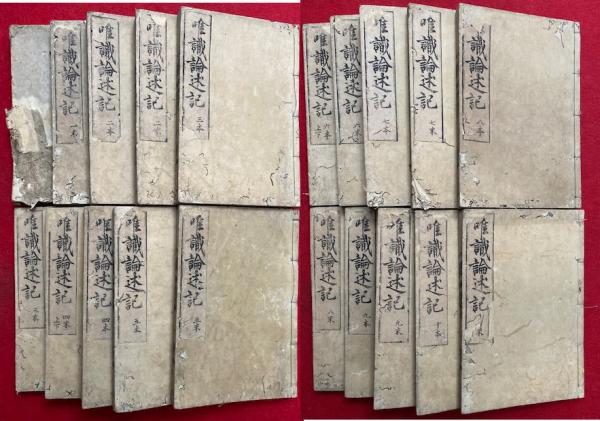 唯識論述記 一末
唯識論述記 二本
唯識論述記 二末
唯識論述記 三本
唯識論述記 六本 上下
唯識論述記 六末
唯識論述記 七本
唯識論述記 七末
唯識論述記 八本
唯識論述記 三末
唯識論述記 四末 上下
唯識論述記 四本
唯識論述記 五本
唯識論述記 五末
唯識論述記 八末
唯識論述記 九本
唯識論述記 九末
唯識論述記 十本
唯識論述記 末